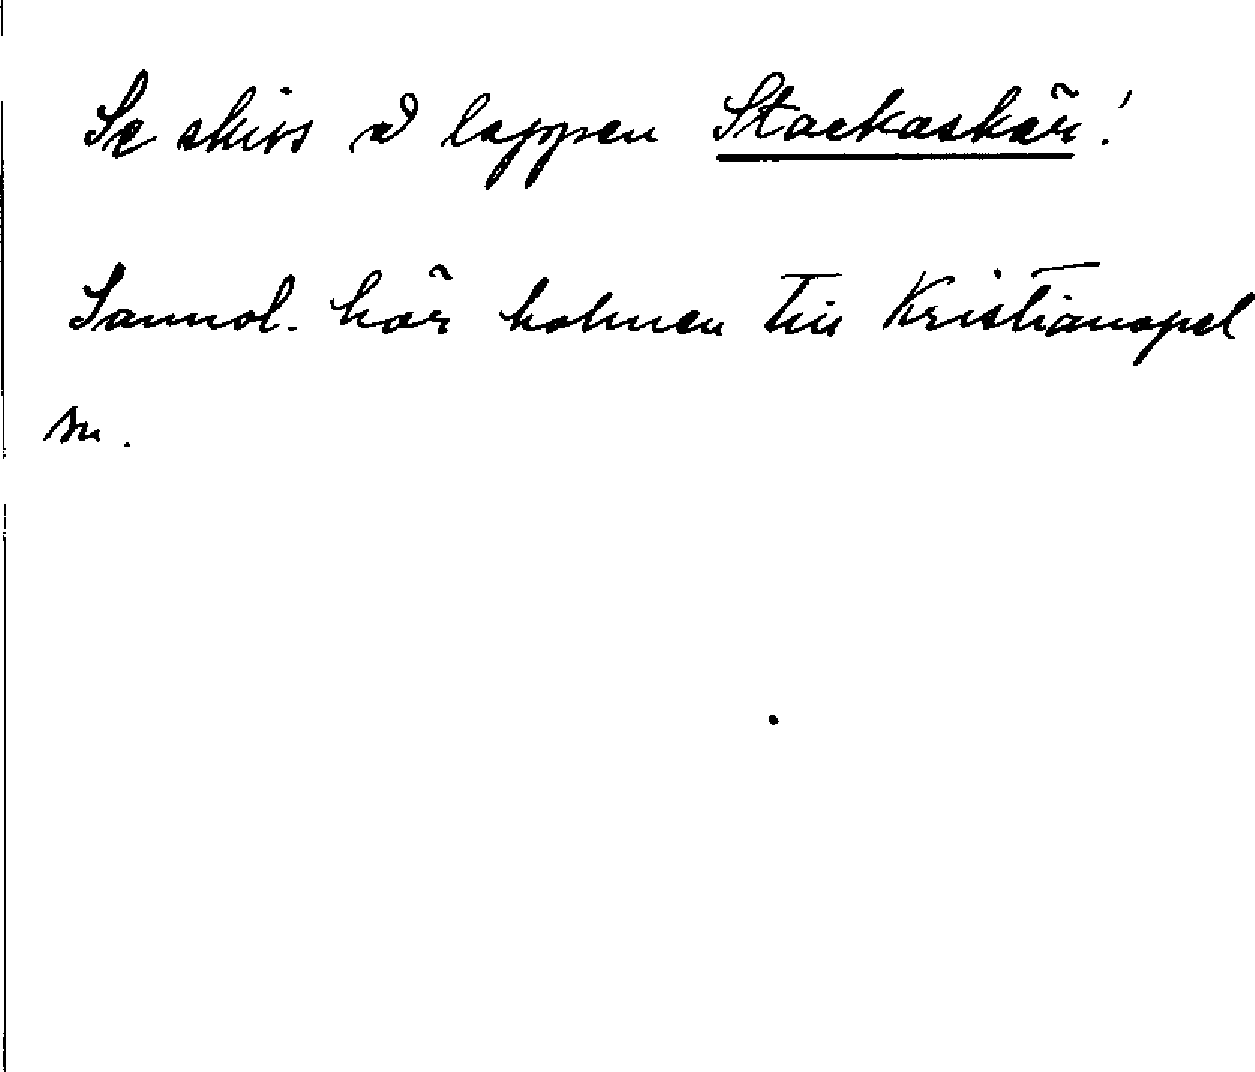 Se skiss å lappen Stackaskär!
Sannol. hör holmen till Kristianopel
sn.